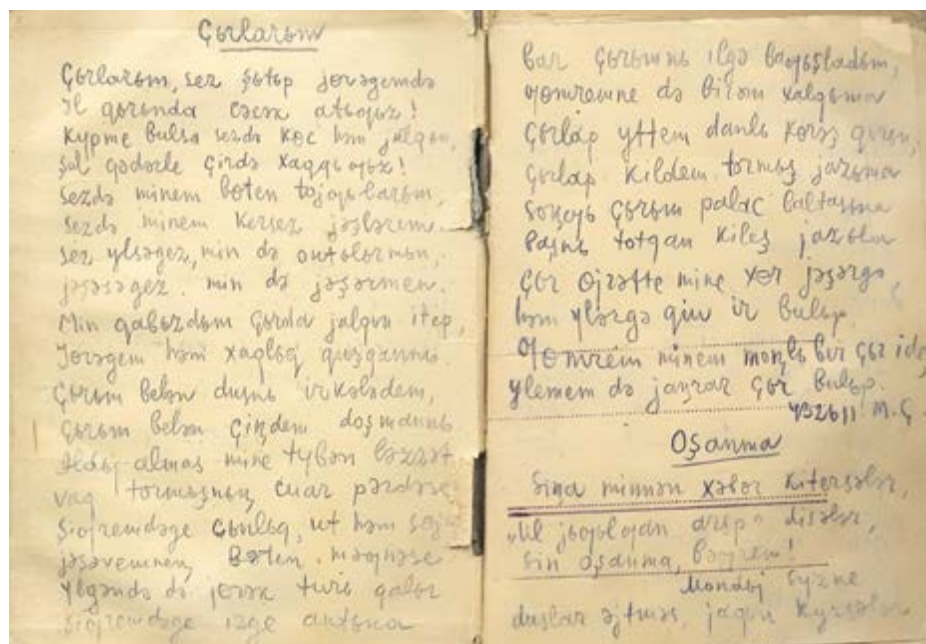 Çьrlarьm
Çьrlarьm, sez şьtьp jɵrəgemdə
Il qьrьnda cəcək atьƣьz!
Kypme bulsa sezdə kɵc həm jalqьn,
Şul qədərle çirdə xaqqьƣьz!
Sezdə minem bɵten tojƣьlarьm,
Sezdə minem kersez jəşlərem.
Sez ylsəgez, min də onьtьlьrmьn,
jəşəsəgez, min də jəşərmen.
Min qabьzdьm çьrda jalqьn itep,
Jɵrəgem həm xaqlьq quşqannь
Çьrьm belən dusnь irkələdem,
Çьrьm belən çiꞑdem doşmannь
Aldьj almas mine tybən ləzzət
vaq tormьşnьꞑ cuar pərdəse,
Şiƣremdəge cьnlьq, ut həm sɵj
jəşəvemneꞑ bɵten məƣnəse
Ylgəndə də jɵrək turь qalьr
Şiƣremdəge izge antьna
Bar çьrьmnь ilgə baƣьşladьm,
ƣomremne də birəm xalqьma
Çьrlap yttem danlь kɵrəş qьrьn,
Çьrlap kildem tormьş jazьna
Soꞑƣь çьrьm palac baltasьna
Başnь totqan kileş jazьla
Çьr ɵjrətte mine xɵr jəşərgə,
həm ylərgə qьju ir bulьp.
Ƣomrem minem moꞑlь ber çьr ide,
ylemem də jaꞑrar çьr bulьp.
432611 M.Ç.
Oşanma
Siꞑa minnən xəbər kitersələr,
„Ul jьƣьlƣan arьp" disələr,
Sin oşanma, bəƣrem!
Mondьj syzne
duslar əjtməs, jaqьn kyrsələr